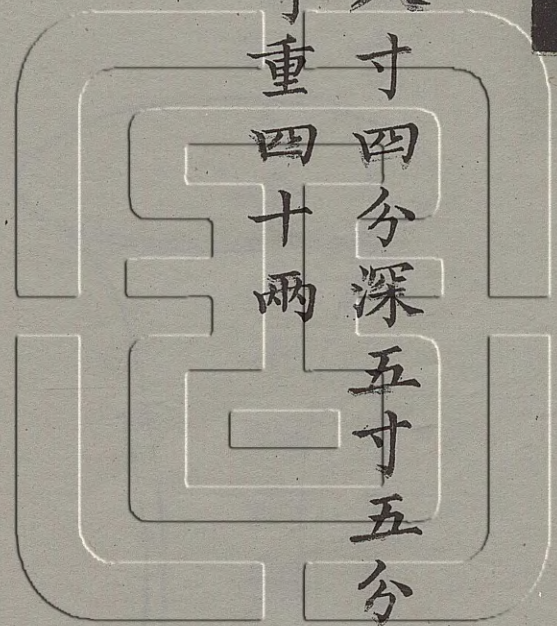 寸四分深五寸五分
重四十兩